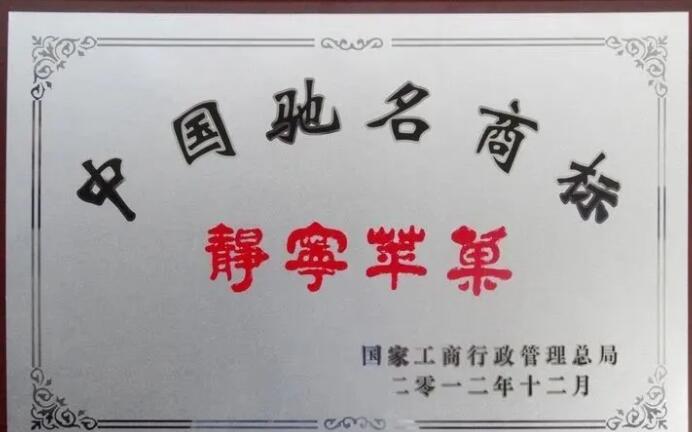 中国驰名商标
靜寧苹菓
国家工商行政管理总局
二零一二年十二月